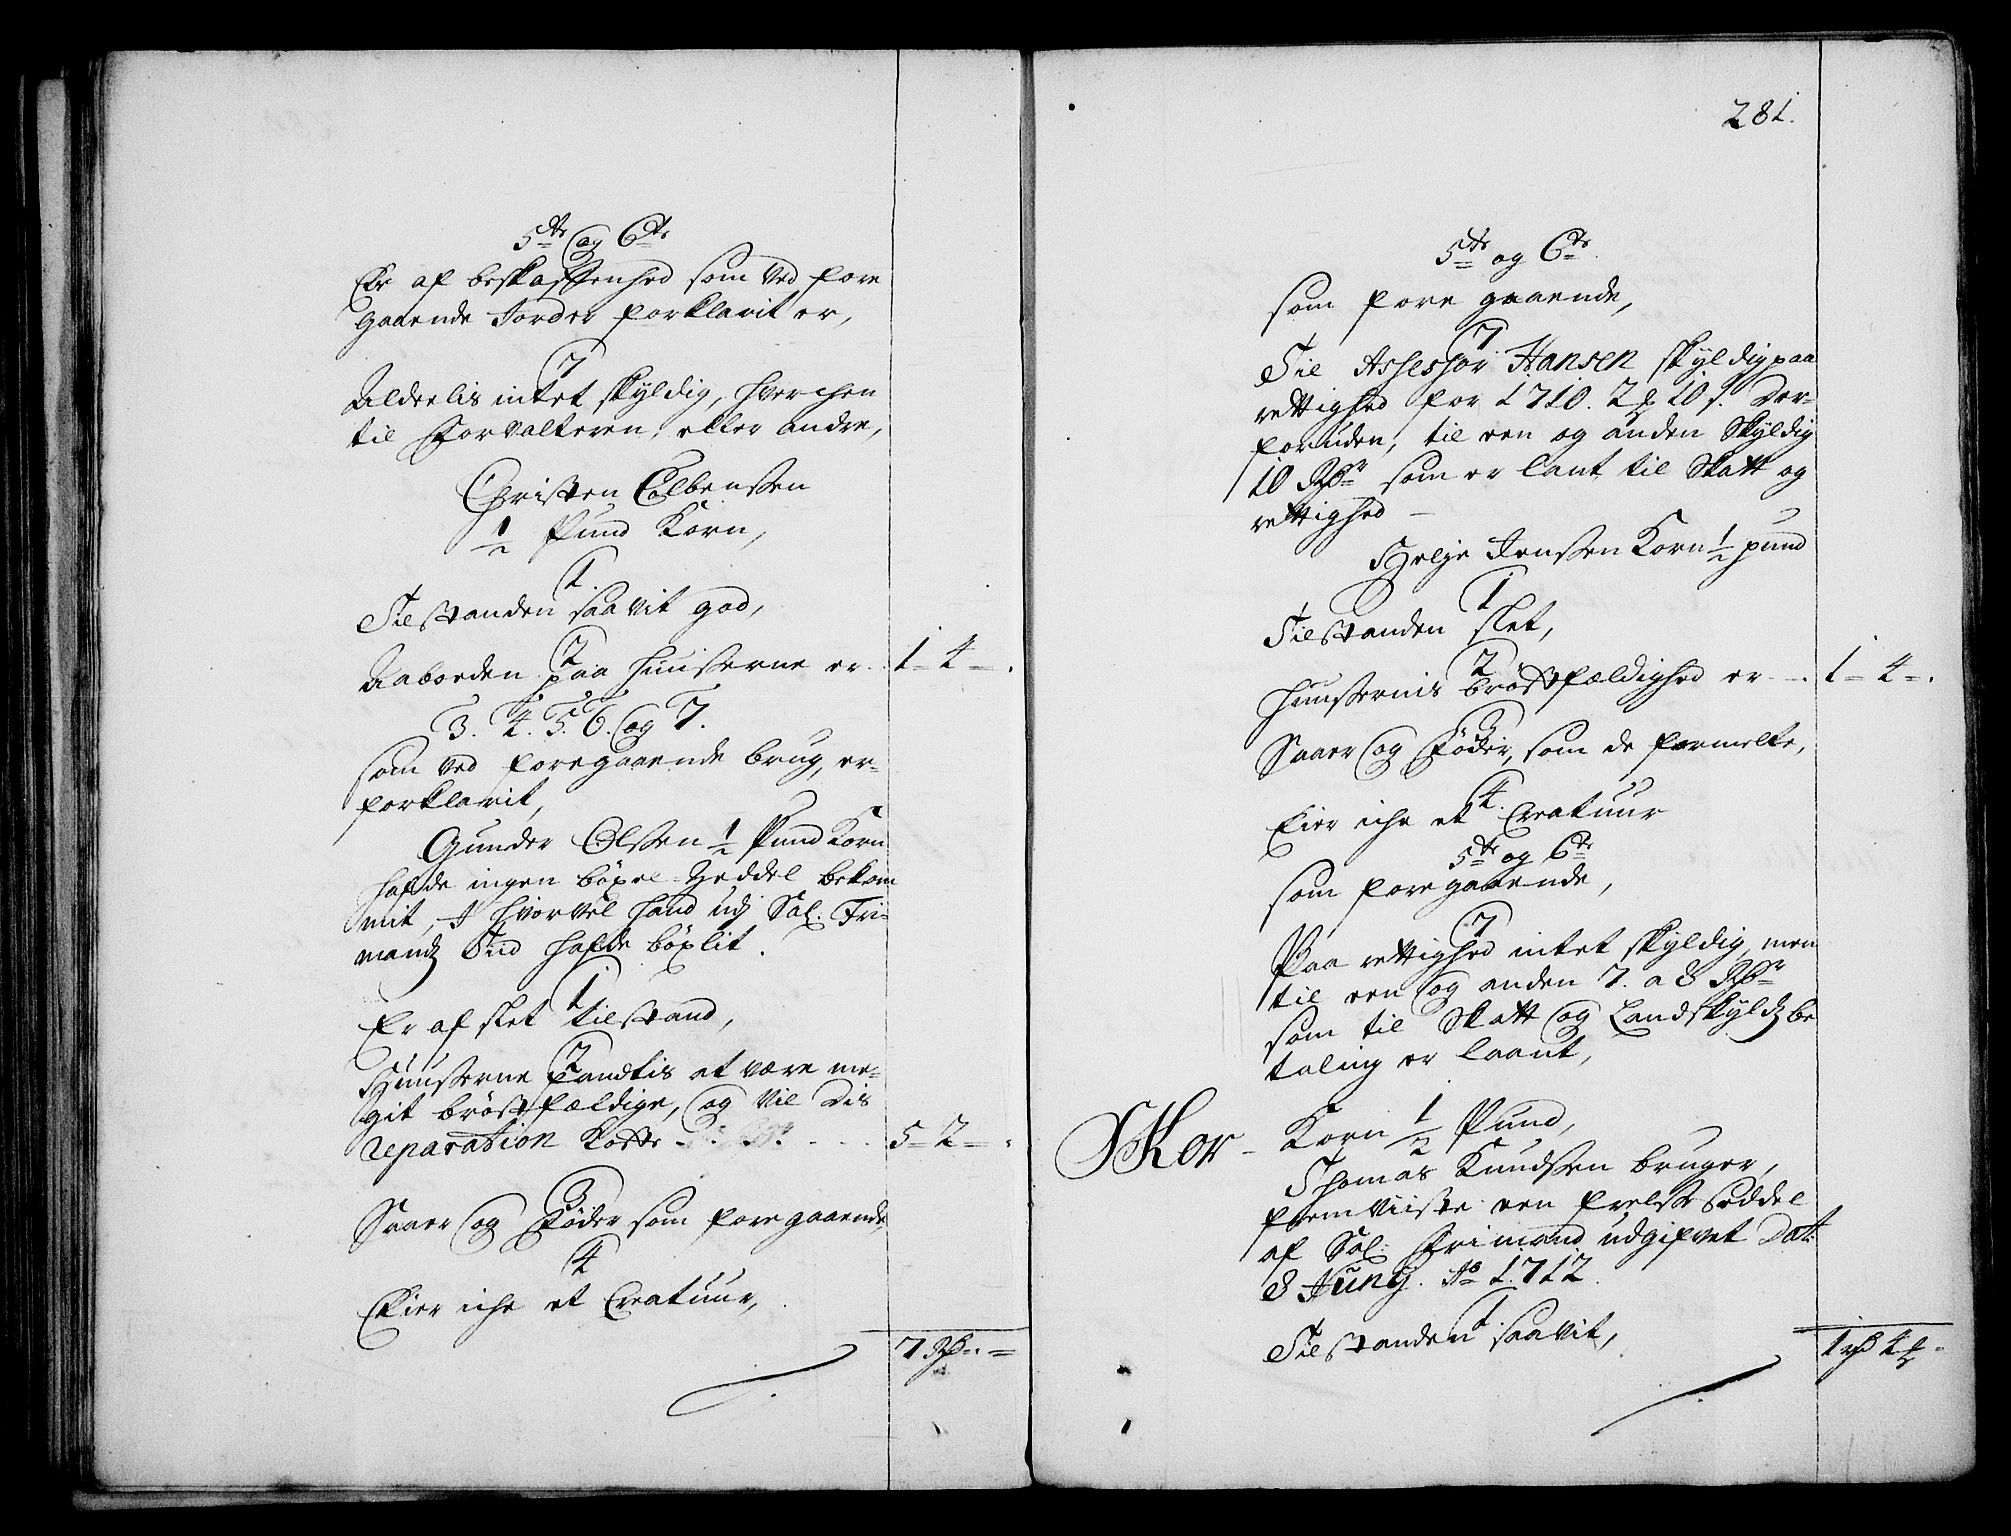 5te og 6te
Er af beskaffenhed som ved fore
gaaende Jorder forklarit er,
7
Alderlis intet skyldig, hverchen
til Forvalteren, eller andre,
Christen Colbenssen
1/2 Pund Korn,
1.
Tilstanden saavit god,
2
Aaboeden paa huusserne er 1 - 4 -
3. 4. 5. 6. og 7.
som ved foregaaende brug, er
forklarit,
Gunder Olssen 1/2 Pund Korn
hafde ingen böxel Zeddel bekom
mit, I hvorvel hand udj Sal. Fri-
mands Tiid hafde böxlit.
1
Er af slet tilstand,
2
Huusserne fandtis at være me-
git bröstfældige, og vil dis
reparation koste 5 - 2 -
3
Saaer og föder som foregaaende
4
Eier iche et Creatuur,
7 Rd
281.
5te og 6te
som fore gaaende,
7
Til Assessor Hansen skyldig paa
rettighed for 1710. 2 10 s. der-
foruden, til een og anden skyldig
10 Rdr som er lant til Skatt og
rettighed
Helje Jenssen Korn 1/2 pund
1
Tilstanden slet,
2
huussernis bröstfældighed er 1 - 4 -
3
Saaer og föder, som de formelte,
4.
Eier iche et Creatuur
5te og 6te
som foregaaende,
7
Paa rettighed intet skyldig, men
til een og anden 7. a 8 Rdr
som til Skatt og Landskylds be
taling er laant,
SKor - Korn 1/2 Pund,
Thomas Knudssen bruger,
fremviiste een frelsse Seddel
af Sal: Frimand udgifvet Dat:
8 Junij. Ao 1712.
1
Tilstanden saavit,
1 rd 4